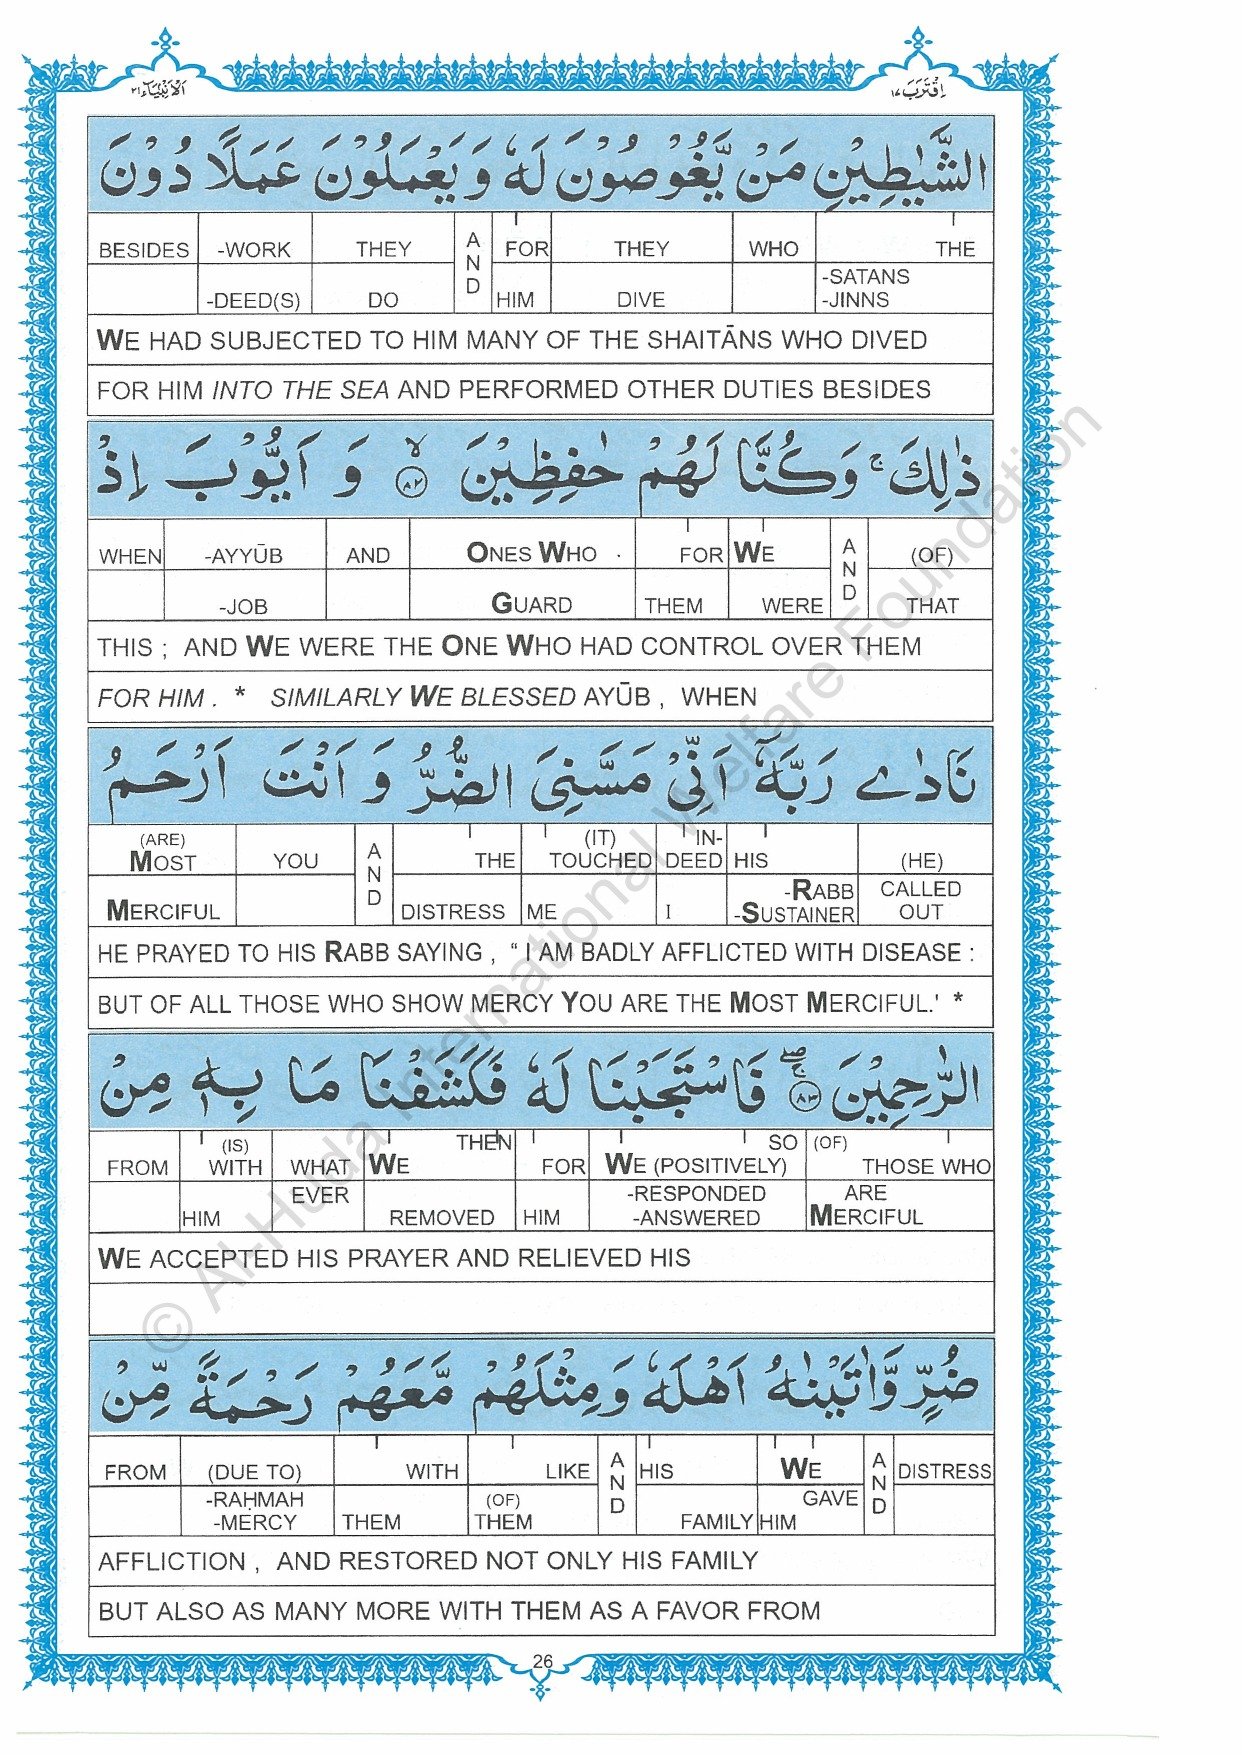 اَلْاَنْۢبِيَآء٢١
اِقْتَرَبَ ١٧
الشَّيٰطِيْنِ مَنْ يَّغُوْصُوْنَ لَهٗ وَ يَعْمَلُوْنَ عَمَلًا دُوْنَ
BESIDES -WORK THEY AND FOR THEY WHO THE
-DEED(S) DO HIM DIVE -SATANS -JINNS
WE HAD SUBJECTED TO HIM MANY OF THE SHAITĀNS WHO DIVED
FOR HIM INTO THE SEA AND PERFORMED OTHER DUTIES BESIDES
ذٰلِكَ ۚ وَ كُنَّا لَهُمْ حٰفِظِيْنَ ۙ ٨٢ وَ اَيُّوْبَ اِذْ
WHEN -AYYŪB AND ONES WHO . FOR WE AND (OF)
-JOB GUARD THEM WERE THAT
THIS ; AND WE WERE THE ONE WHO HAD CONTROL OVER THEM
FOR HIM . * SIMILARLY WE BLESSED AYŪB , WHEN
نَادٰے رَبَّهٗۤ اَنِّيْ مَسَّنِيَ الضُّرُّ وَ اَنْتَ اَرْحَمُ
(ARE) MOST YOU AND THE (IT) TOUCHED IN-DEED HIS (HE)
MERCIFUL DISTRESS ME I -RABB -SUSTAINER CALLED OUT
HE PRAYED TO HIS RABB SAYING , “ I AM BADLY AFFLICTED WITH DISEASE :
BUT OF ALL THOSE WHO SHOW MERCY YOU ARE THE MOST MERCIFUL.' *
الرّٰحِمِيْنَ ۖۚ ٨٣ فَاسْتَجَبْنَا لَهٗ فَكَشَفْنَا مَا بِهٖ مِنْ
FROM (IS) WITH WHAT THEN WE FOR SO WE (POSITIVELY) (OF) THOSE WHO
HIM EVER REMOVED HIM -RESPONDED -ANSWERED ARE MERCIFUL
WE ACCEPTED HIS PRAYER AND RELIEVED HIS
ضُرٍّ وَّ اٰتَيْنٰهُ اَهْلَهٗ وَ مِثْلَهُمْ مَّعَهُمْ رَحْمَةً مِّنْ
FROM (DUE TO) WITH LIKE AND HIS WE AND DISTRESS
-RAḤMAH -MERCY THEM (OF) THEM FAMILY GAVE HIM
AFFLICTION , AND RESTORED NOT ONLY HIS FAMILY
BUT ALSO AS MANY MORE WITH THEM AS A FAVOR FROM
26
© Al-Huda International Welfare Foundation